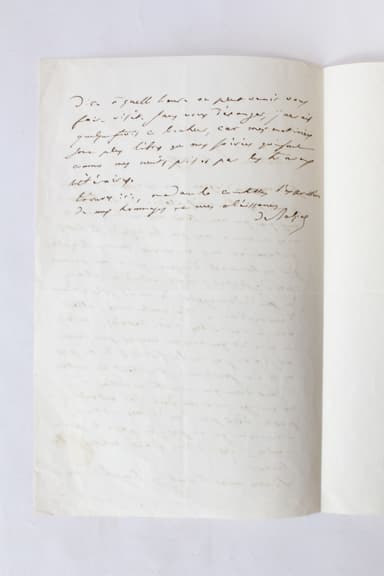 dire à quelle heure on peut venir vous
faire visite sans vous déranger, j'aurais
quelquefois ce bonheur, car mes matinées
sont plus libres que mes soirées qui sont
comme mes nuits prises par les travaux
littéraires.
trouvez ici, madame la comtesse, l'expression
de mes hommages et mes obéissances
de Balzac